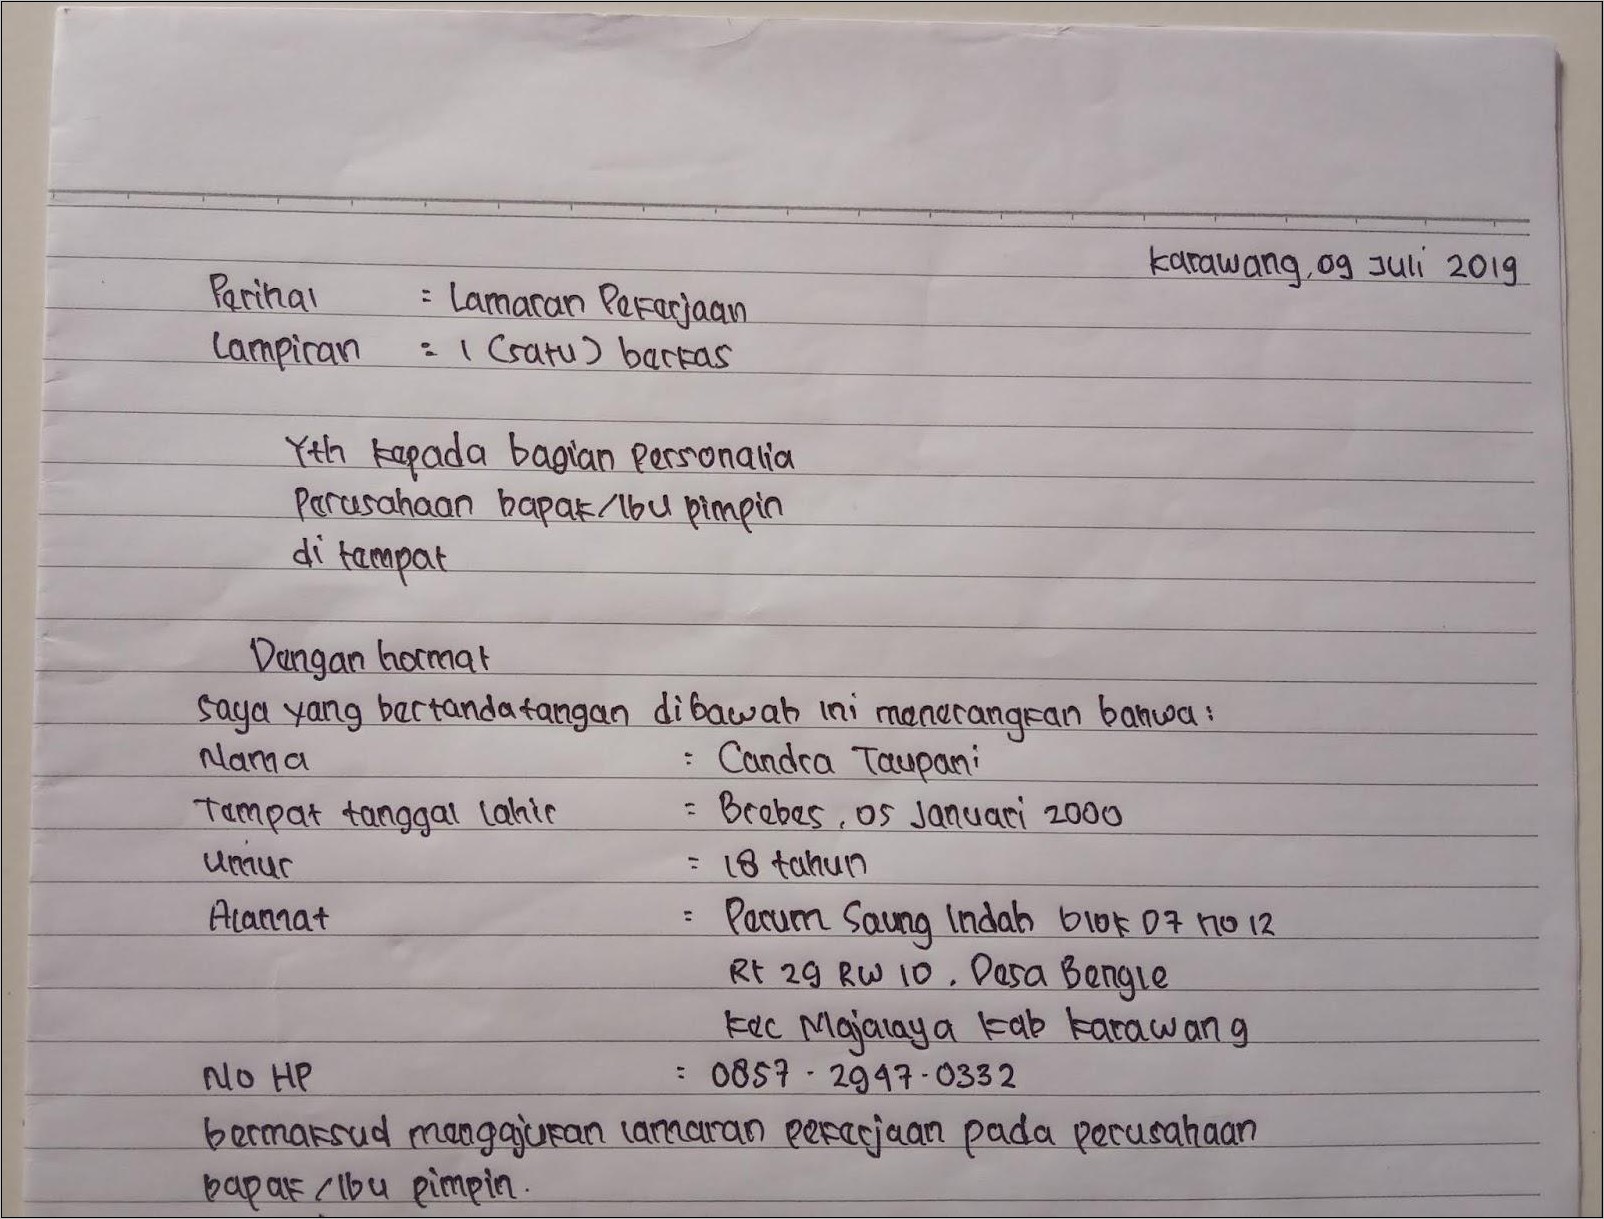 Karawang, 09 Juli 2019
Perihal : Lamaran Pekerjaan
Lampiran : 1 (satu) berkas
Yth kepada bagian Personalia
Perusahaan bapak/Ibu pimpin
di tempat
Dengan hormat
saya yang bertandatangan dibawah ini menerangkan bahwa :
Nama : Candra Taupani
Tempat tanggal Lahir : Brebes, 05 Januari 2000
Umur : 18 tahun
Alamat : Perum Saung Indah blok D7 no 12
Rt 29 RW 10. Desa Bengle
Kec Majalaya Kab Karawang
No HP : 0857 - 2947 - 0332
bermaksud mengajukan lamaran pekerjaan pada perusahaan
bapak/Ibu pimpin.